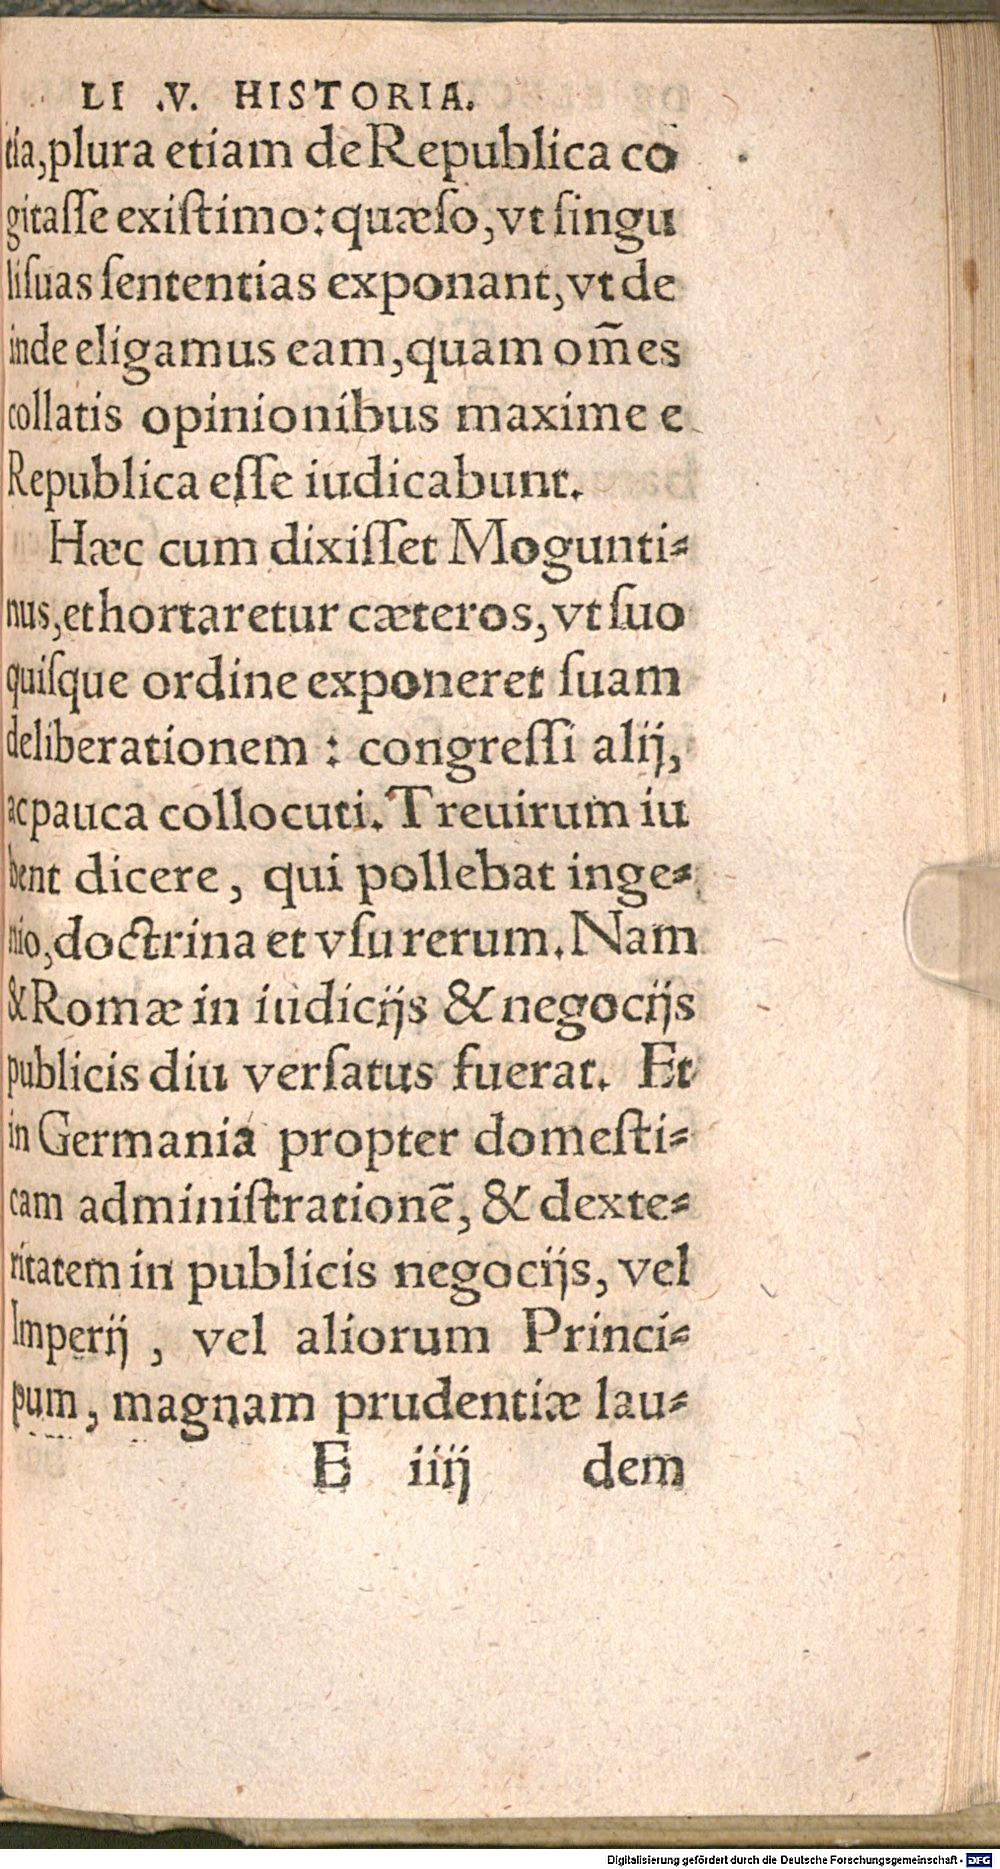 LI .V. HISTORIA.
tia,plura etiam de Republica co
gitaſſe exiſtimo: quæſo, vt ſingu
li ſuas ſententias exponant, vt de
inde eligamus eam, quam om̃es
collatis opinionibus maxime e
Republica eſſe iudicabunt.
Hæc cum dixiſſet Mogunti⸗
nus, et hortaretur cæteros, vt ſuo
quiſque ordine exponeret ſuam
deliberationem : congreſſi alij,
ac pauca collocuti. Treuirum iu
bent dicere, qui pollebat inge⸗
nio, doctrina et vſu rerum. Nam
& Romæ in iudicijs & negocijs
publicis diu verſatus fuerat. Et
in Germania propter domeſti⸗
cam adminiſtrationē, & dexte⸗
ritatem in publicis negocijs, vel
Imperij , vel aliorum Princi⸗
pum, magnam prudentiæ lau⸗
E iiij dem
Digitalisierung gefördert durch die Deutsche Forschungsgemeinschaft - DFG